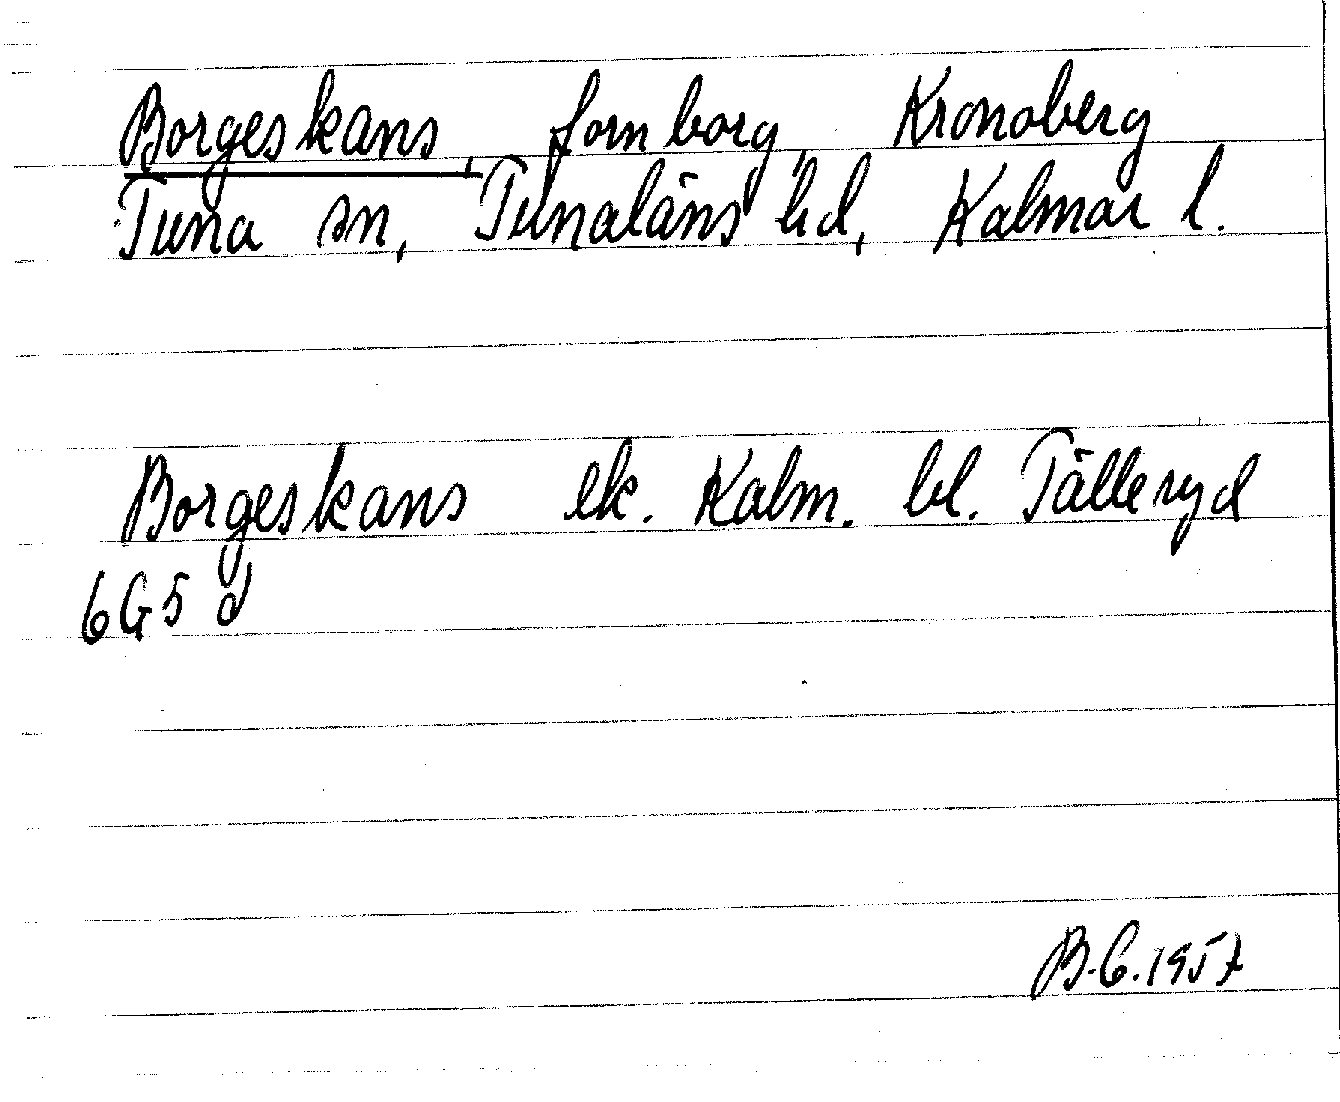 Borgeskans, fornborg, Kronoberg
Tuna sn, Tunaläns hd, Kalmar l.
Borgeskans ek. Kalm. bl. Tälleryd
6G5 d
B.C. 1957